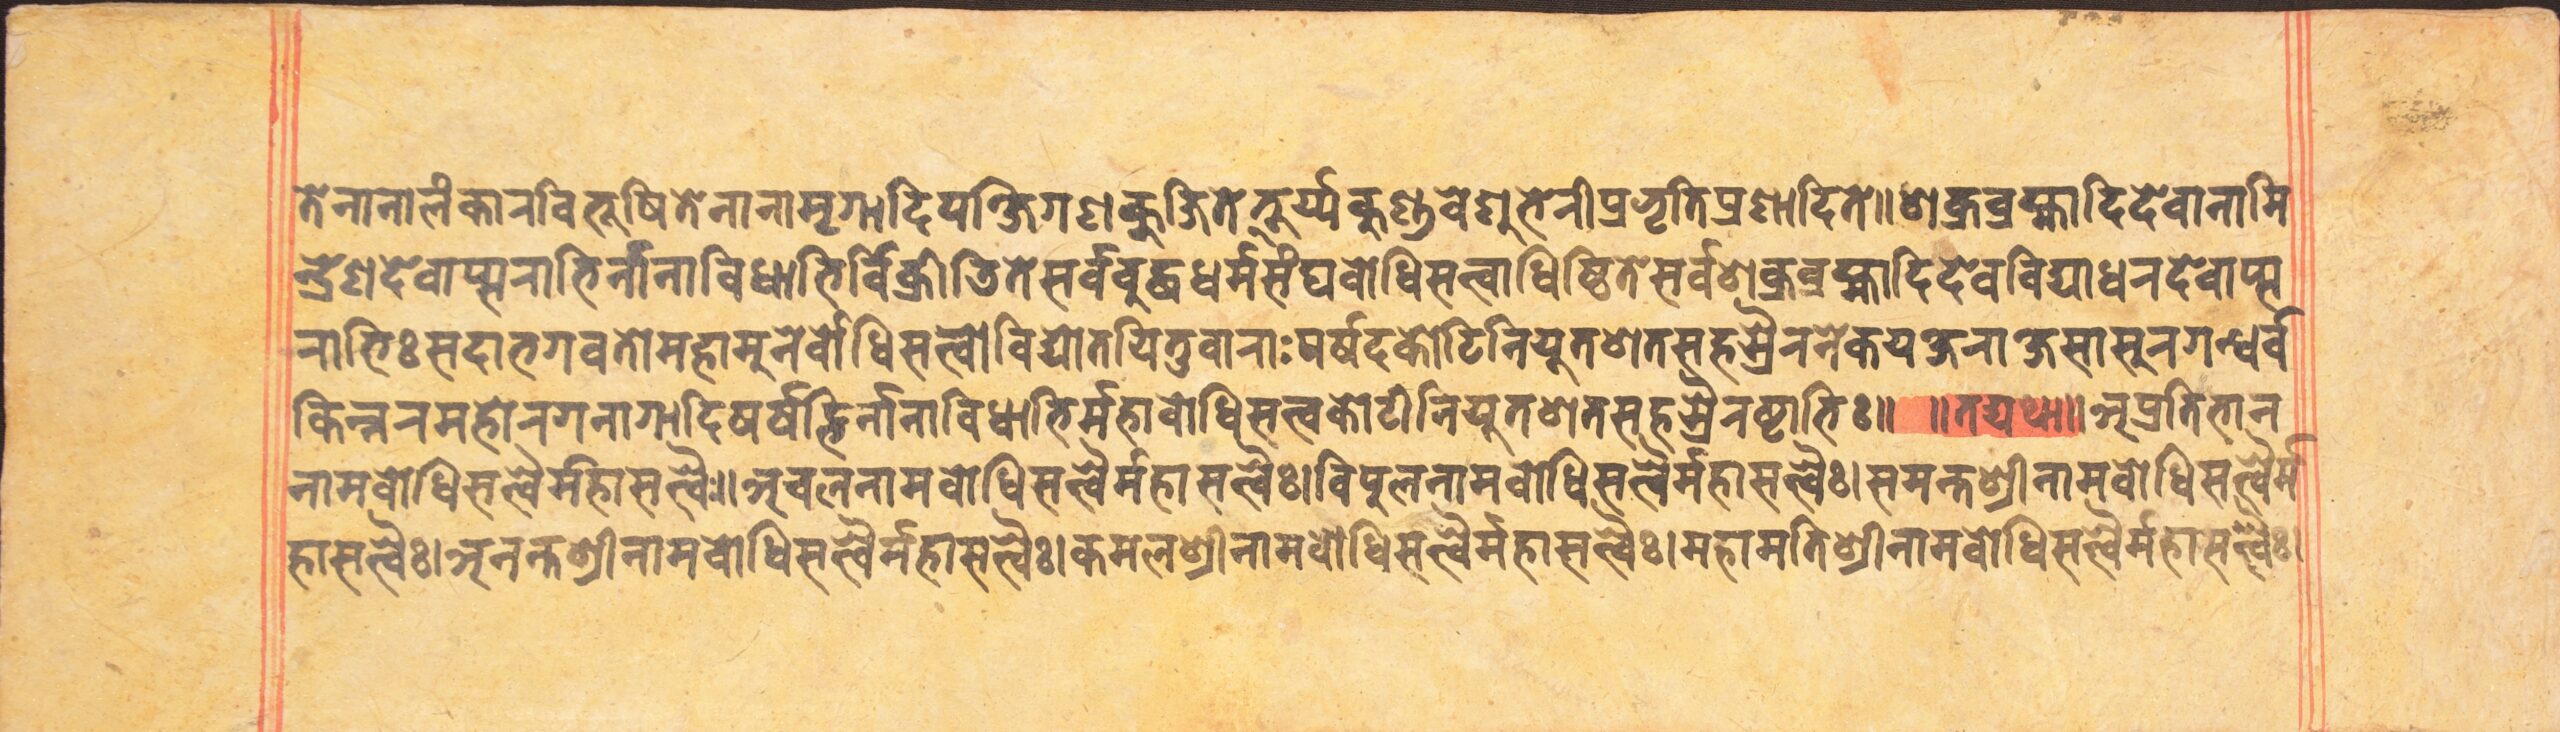 तेनानालंकारविभूषितेनानामृगादिपक्षिगणकुजिते्तूर्य्यकुण्डवेणुभेरीप्रभृतिप्रणादिते॥शक्रब्रह्मादिदेवानामि
न्द्रेणदेवाप्सराभिर्नानाविधाभिर्विक्रीडितेसर्वबुद्धधर्मसंघबोधिसत्वाधिष्ठितेसर्वशक्रब्रह्मादिदेवविद्याधरदेवाप्स
राभिःसदाभगवतोमहामुनेर्बोधिसत्वोविद्योतयितुवाराःपर्षदकोटिनियूतशतसहस्रैरनेकयक्षराक्षसासुरगन्धर्व
किन्नरमहोरगनागादिपर्षद्भिर्नानाविधाभिर्महाबोधिसत्वकोटीनियूतशतसहस्रैरष्टाभिः॥ ॥तद्यथा॥अप्रतिभान
नामबोधिसत्वैर्महासत्वैः॥अचलनामबोधिसत्वैर्महासत्वैः।विपुलनामबोधिसत्वैर्महासत्वैः।समन्तश्रीनामबोधिसत्वैर्म
हासत्वैः।अनन्तश्रीनामबोधिसत्वैर्महासत्वैः।कमलश्रीनामबोधिसत्वैर्महासत्वैः।महामतिश्रीनामबोधिसत्वैर्महासत्वैः।